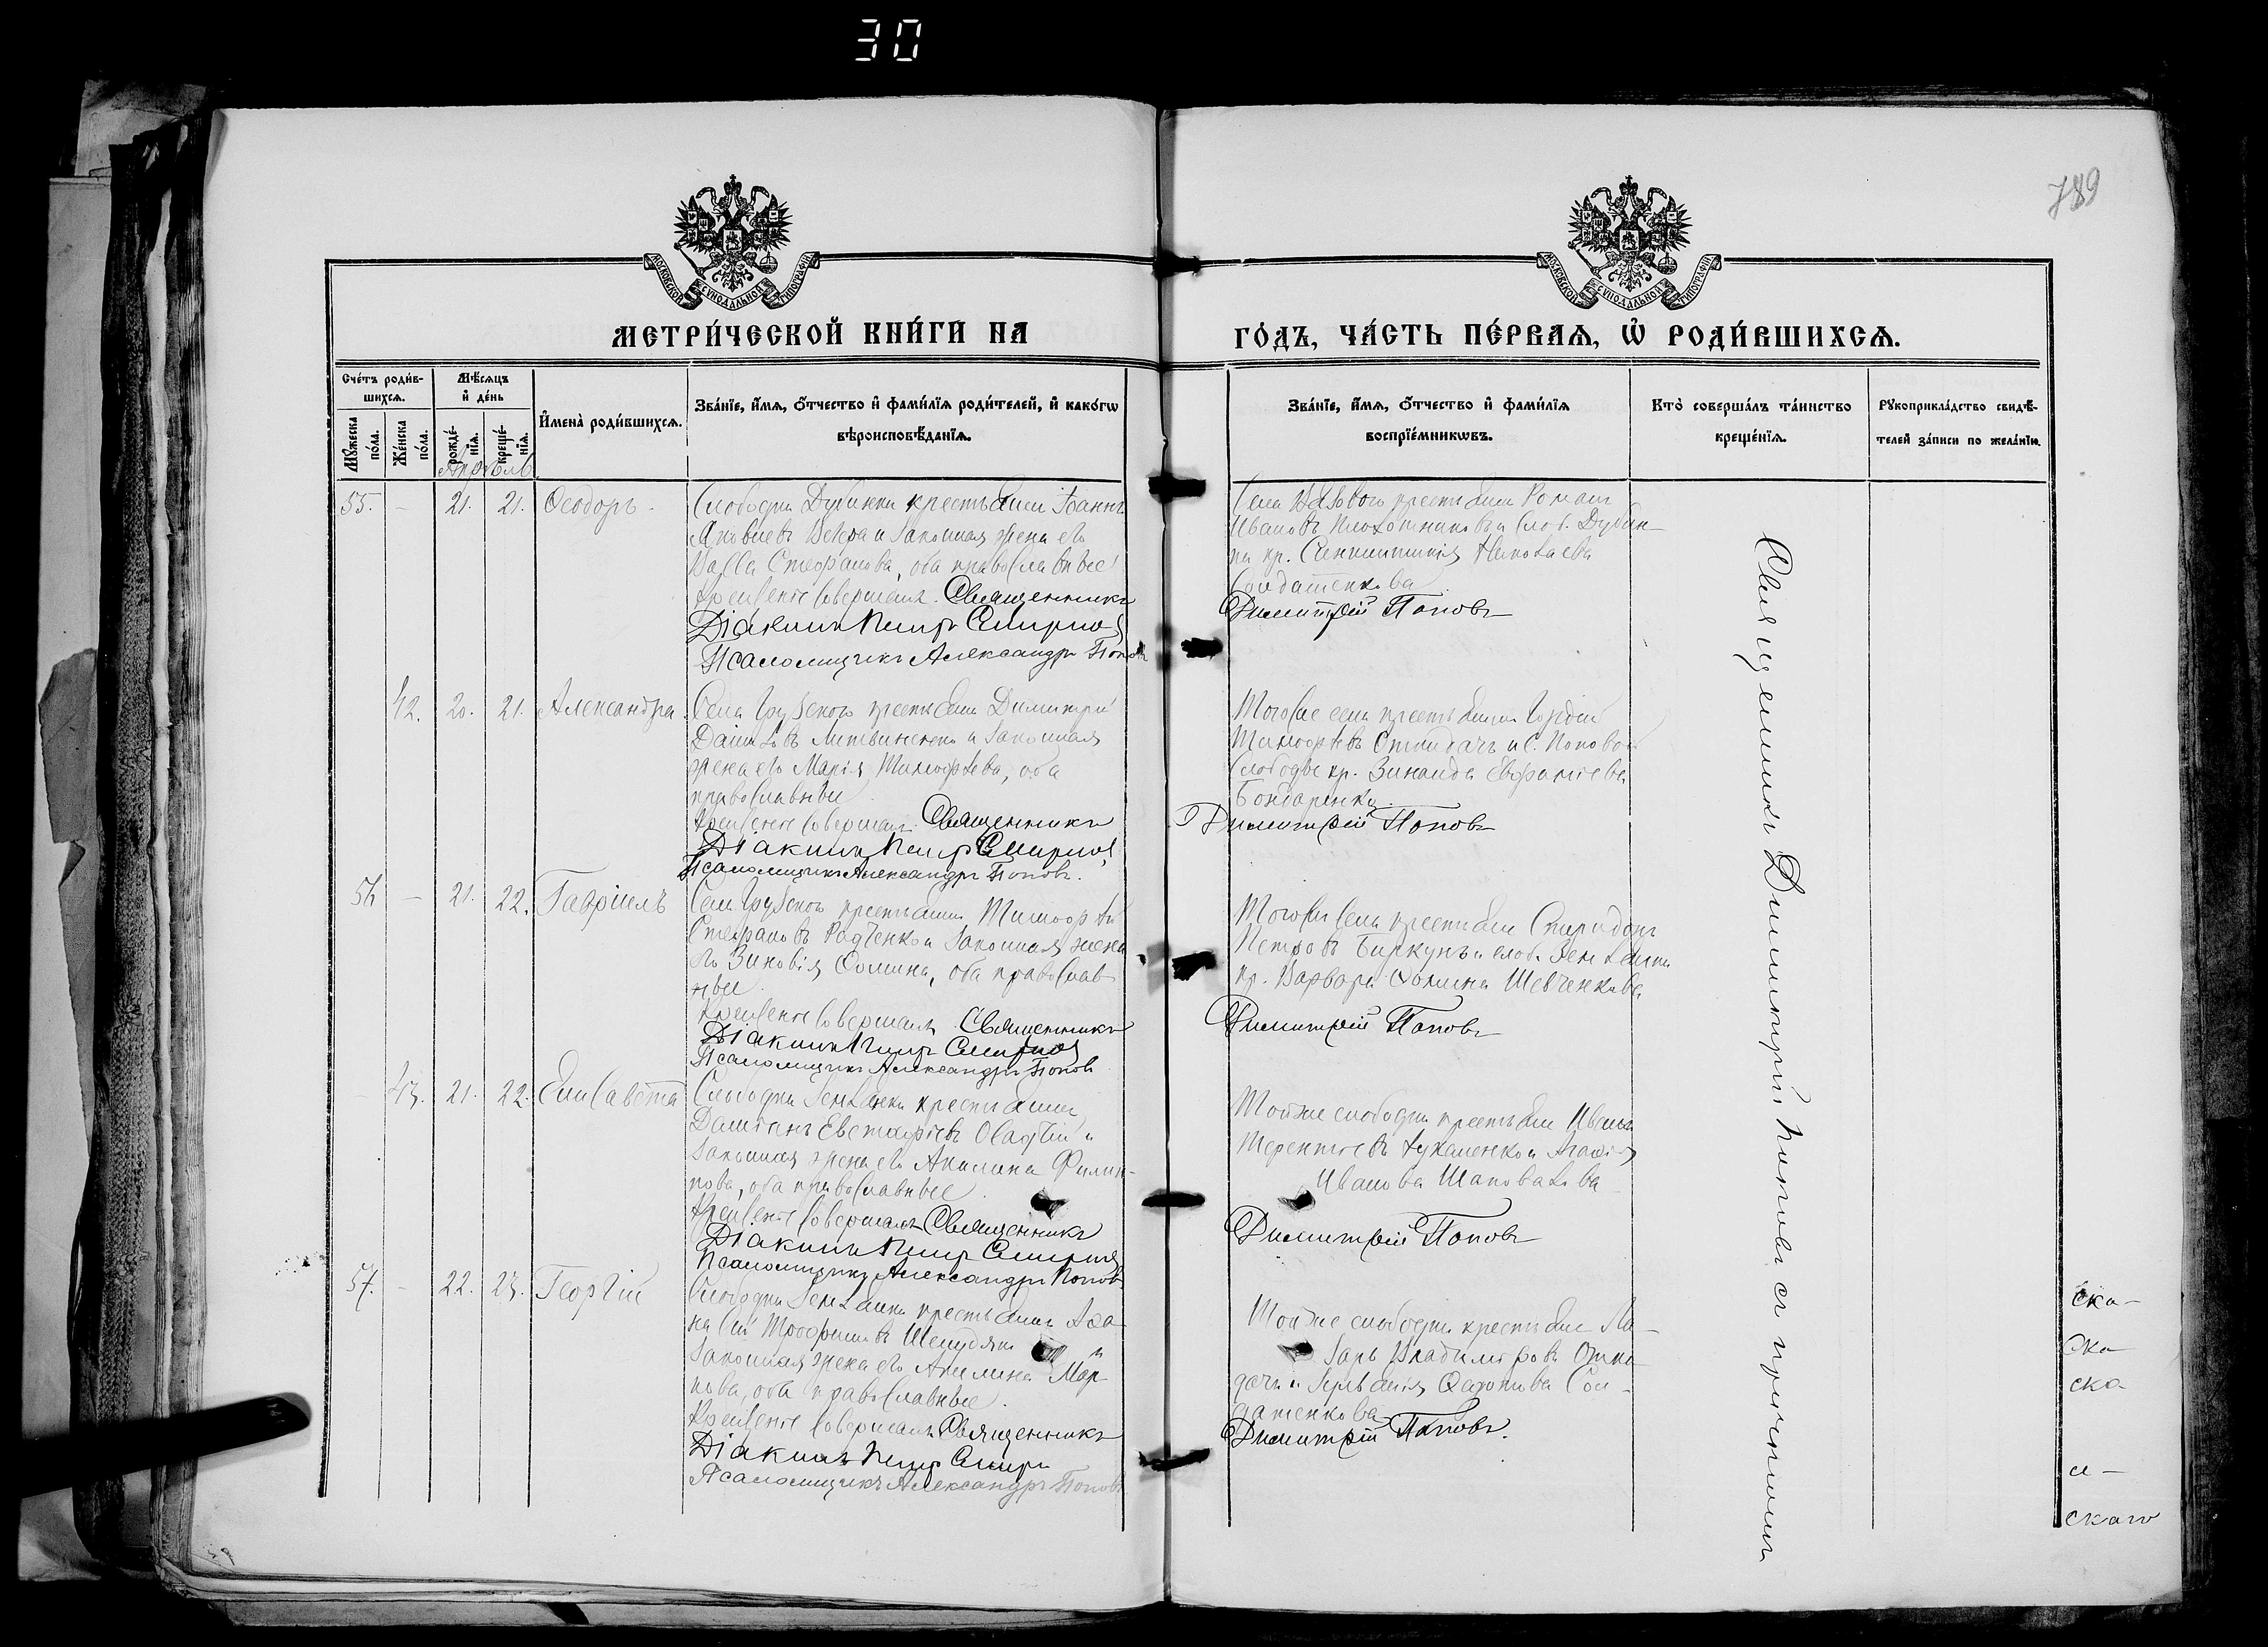 30
789
МОСКОВСКОЙ СѴНОДАЛЬНОЙ ТИПОГРАФІИ
МОСКОВСКОЙ СѴНОДАЛЬНОЙ ТИПОГРАФІИ
МЕТРИ́ЧЕСКОЙ КНИ́ГИ НА
ГО́ДЪ, ЧА́СТЬ ПЕ́РВАѦ, Ѡ҆ РОДИ́ВШИХСѦ.
Сче́тъ роди́в-
шихсѧ.
Мꙋ́жеска по́ла.
Же́нска по́ла.
Мѣ́сѧцъ
и҆ де́нь
рожде́-
нїѧ.
креще́-
нїѧ.
И҆мена̀ роди́вшихсѧ.
Зва́нїе, и҆́мѧ, ѻ҆́тчество и҆ фами́лїѧ роди́телей, и҆ како́гѡ
вѣроисповѣ́данїѧ.
Зва́нїе, и҆́мѧ, ѻ҆́тчество и҆ фами́лїѧ
воспрїе́мникѡвъ.
Кто̀ соверша́лъ та́инство
креще́нїѧ.
Рꙋкоприкла́дство свидѣ́-
телей за́писи по жела́нїю.
Апрѣль
55. - 21. 21. Ѳеодоръ.
Слободки Дубинки крестьянинъ Іоаннъ
Яковлевъ и законная жена его
Васса Стефанова, оба православные
Крещеніе совершалъ Священникъ
Діаконъ Петръ Смирновъ
Псаломщикъ Александръ Поповъ
крестьянинъ Романъ
Ивановъ и слоб. Дубин-
ки кр. Николаева
Солдатенкова
Димитрій Поповъ
42. 20. 21. Александра.
Села крестьянинъ Димитрій
Даниловъ Литвиненко и законная
жена его Марія Тимофѣева, оба
православные
Крещеніе совершалъ Священникъ
Діаконъ Петръ Смирновъ
Псаломщикъ Александръ Поповъ.
Того же села крестьянинъ Гордій
Тимофѣевъ и с. Поповой
Слободы кр. Зинаида
Бондаренко.
Димитрій Поповъ
56 - 21. 22. Гавріилъ
Села крестьянинъ Тимофѣй
Стефановъ Радченко и законная жена
его Зиновія Ѳомина, оба православ-
ные.
Крещеніе совершалъ Священникъ
Діаконъ Петръ Смирновъ
Псаломщикъ Александръ Поповъ
Того же села крестьянинъ Спиридонъ
Петровъ Биркунъ и слоб. Землянки
кр. Варвара Ѳомина Шевченкова
Димитрій Поповъ
- 43. 21. 22. Елисавета
Слободки Землянки крестьянинъ
и
законная жена его Акилина Филип-
пова, оба православные.
Крещеніе совершалъ Священникъ
Діаконъ Петръ Смирновъ
Псаломщикъ Александръ Поповъ
Той же слободки крестьянинъ Иванъ
Терентьевъ Лукашенко и Агафія
Иванова Шаповалова
Димитрій Поповъ
57. - 22. 23. Георгій
Слободки Землянки крестьянинъ Аѳа-
насій Трофимовъ и
законная жена его Акилина Мар-
кова, оба православные.
Крещеніе совершалъ Священникъ
Діаконъ Петръ Смирн
Псаломщикъ Александръ Поповъ
Той же слободки крестьянинъ Ла-
зарь Владиміровъ Отки-
дачъ и Сол-
датенкова
Димитрій Поповъ.
Священникъ Димитрій Поповъ съ причтомъ
ска-
ска
ска
и-
скаго